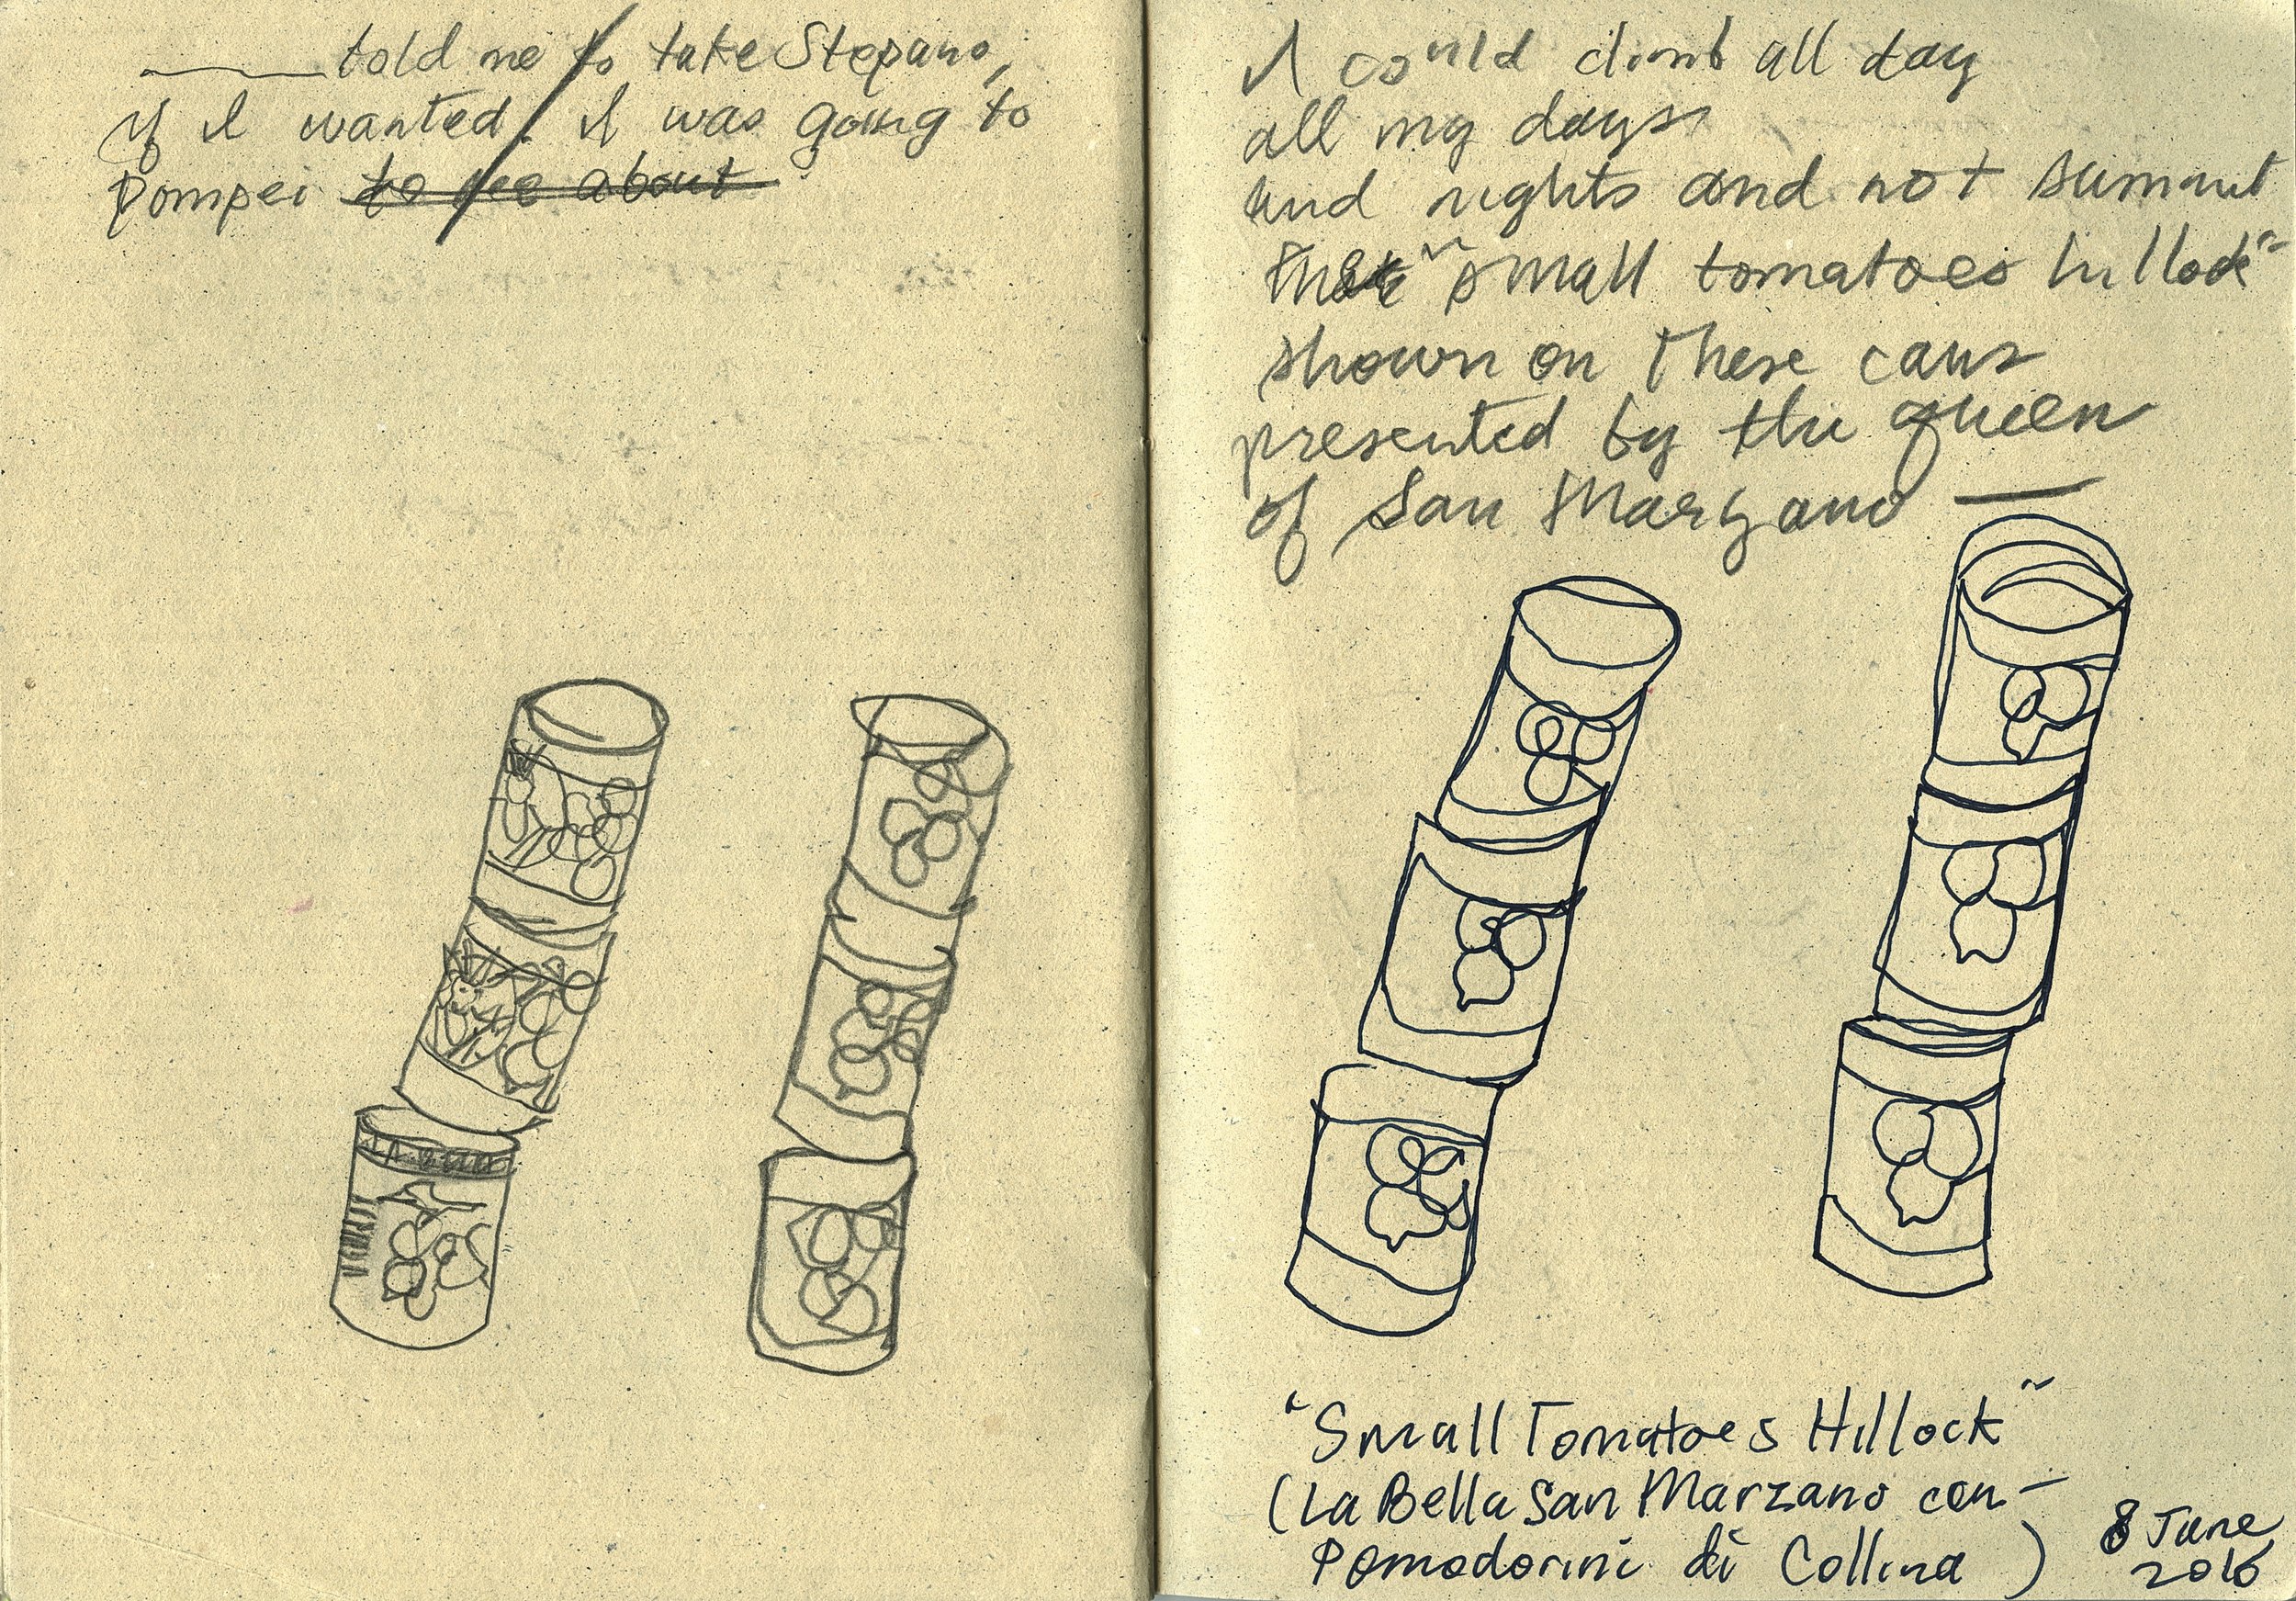 told me to take Stepano,
if I wanted. I was going to
Pompei to see about
I could climb all day
all my days
and nights and not summit
the "small tomatoes hillock"
shown on these cans
presented by the queen
of San Marzano —
"Small Tomatoes Hillock"
(La Bella San Marzano con-
Pomodorini di Collina)
8 June
2016